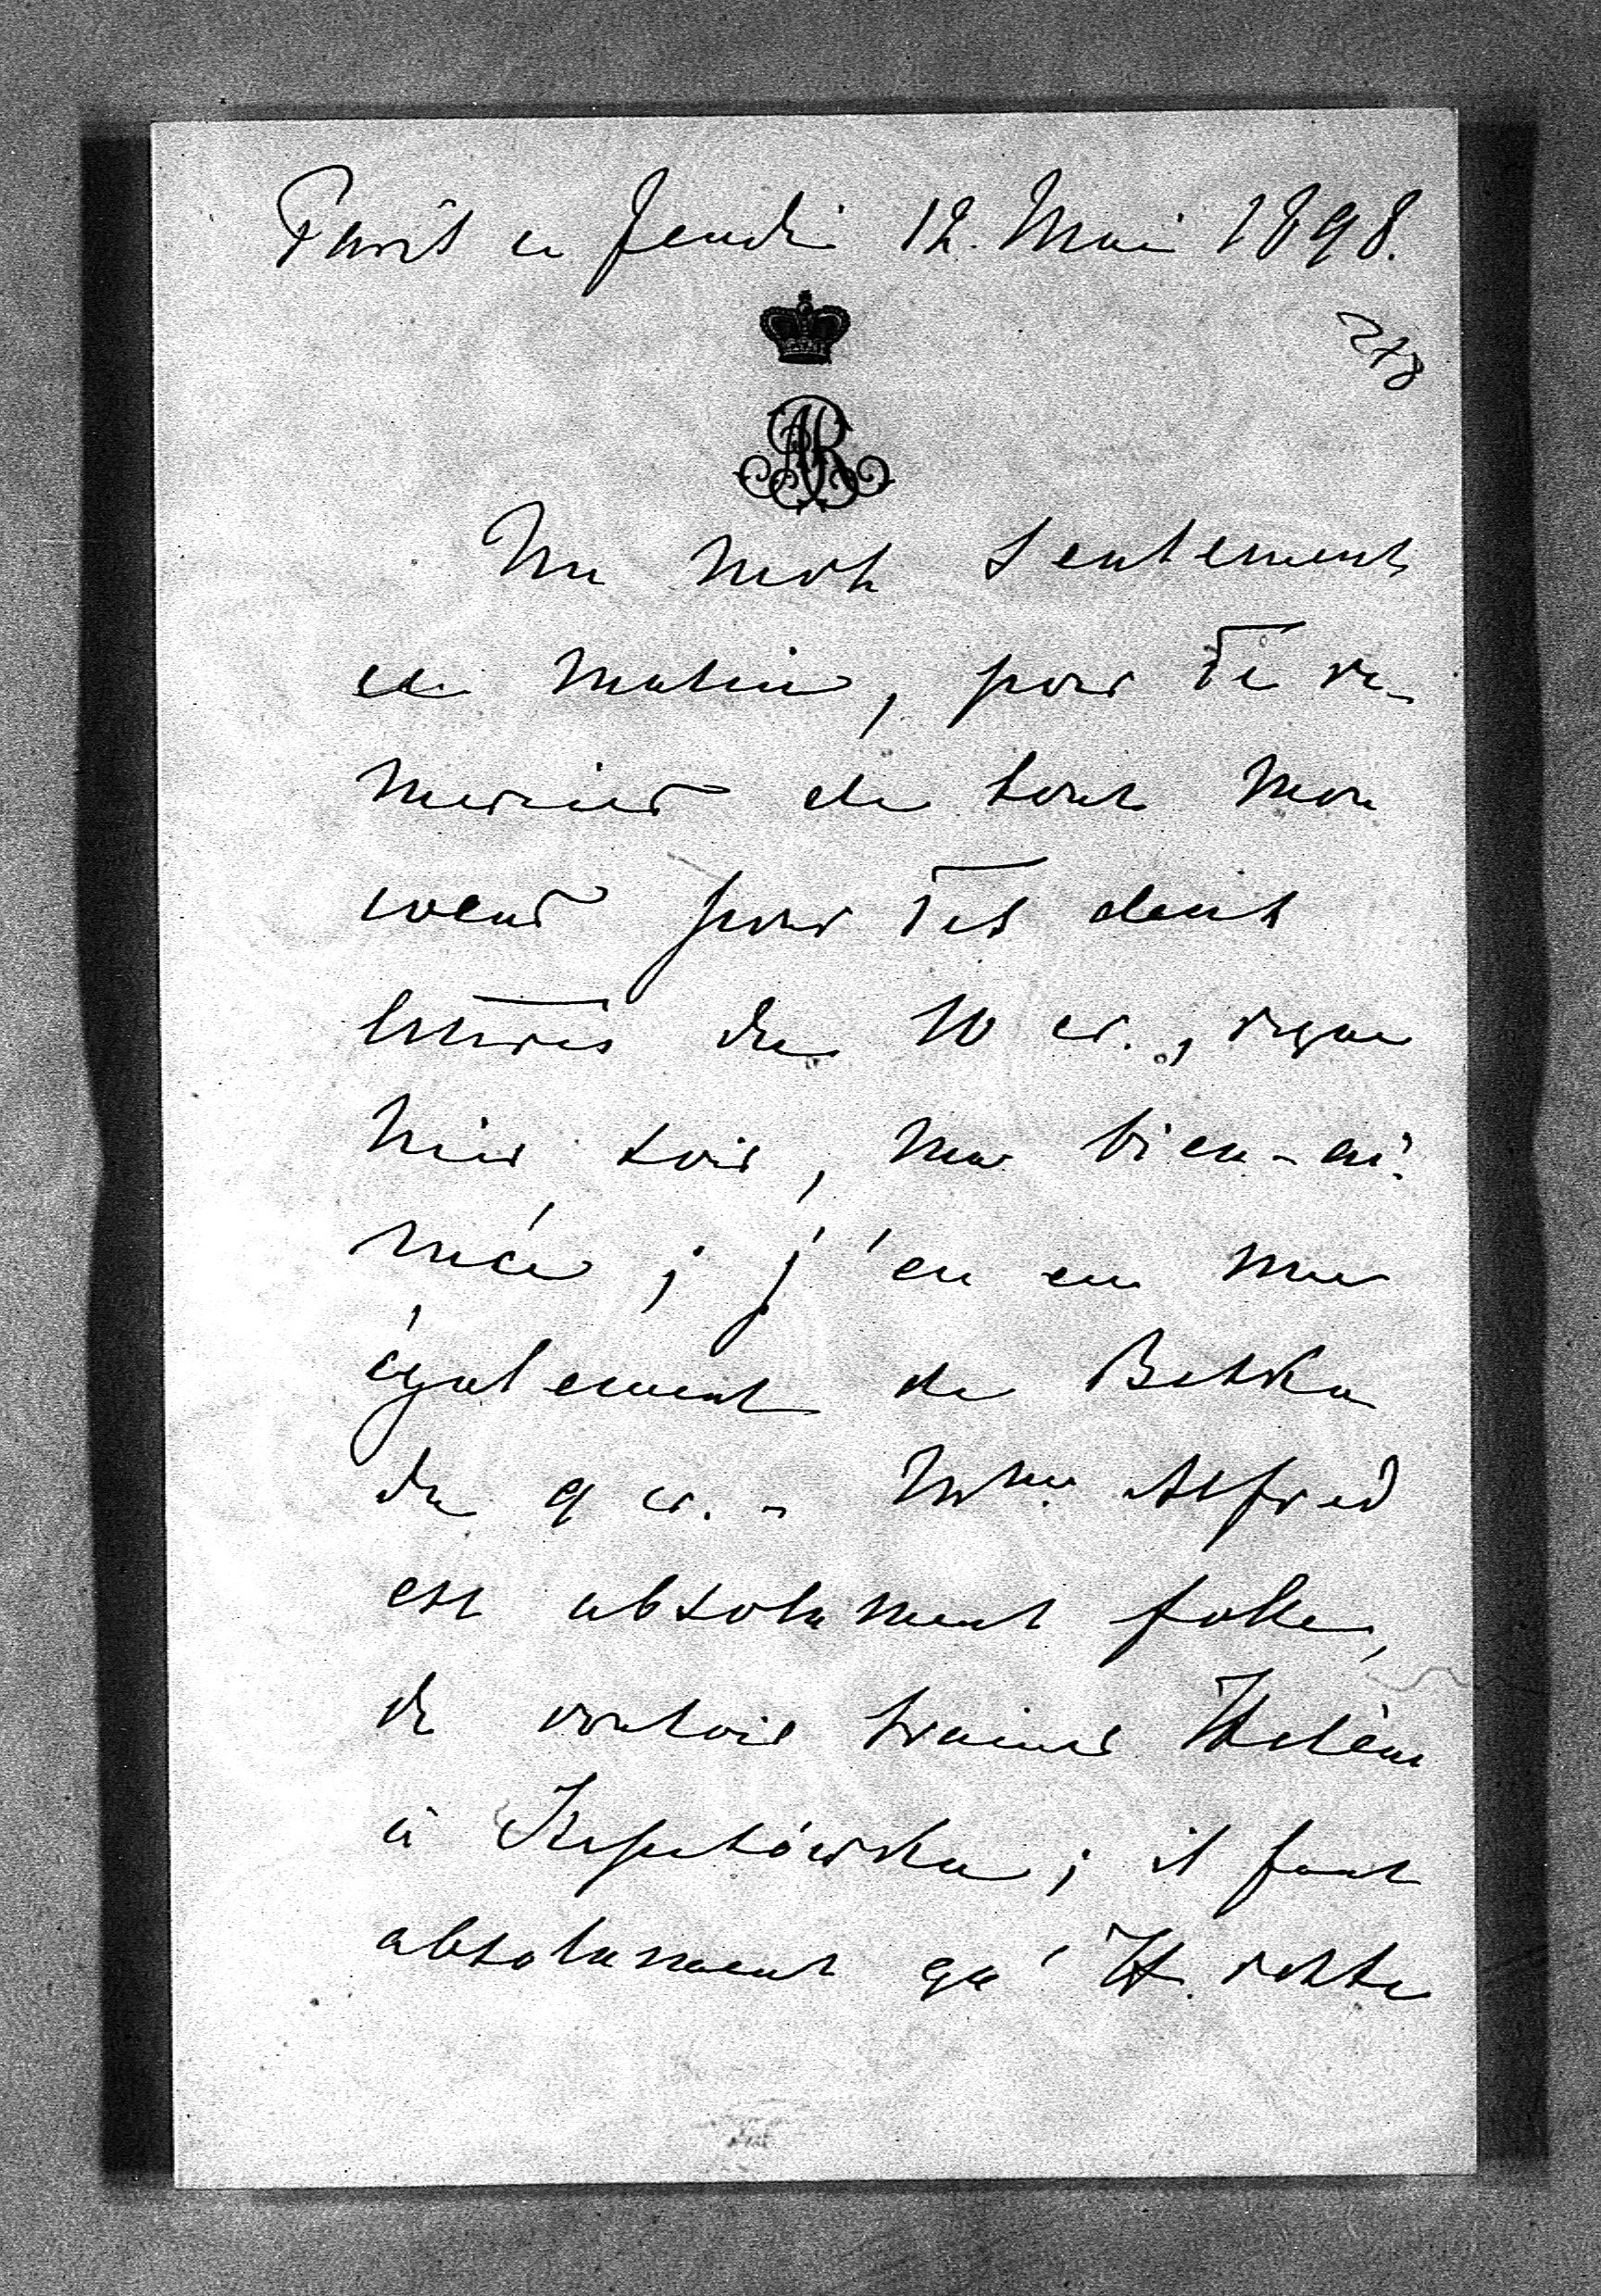 Paris ce Jeudi 12. Mai 1898.
278
AR
Un mot seulement
ce matin, pour Te re-
mercier de tout mon
coeur pour Tes deux
lettres du 10 cr., reçues
hier soir, ma bien-ai-
mée ; j'en eu une
également de Betka
du 9 cr. - Mme Alfred
est absolument folle,
de vouloir trainer Hélène
à Krzeszowice ; il faut
absolument qu'H. reste